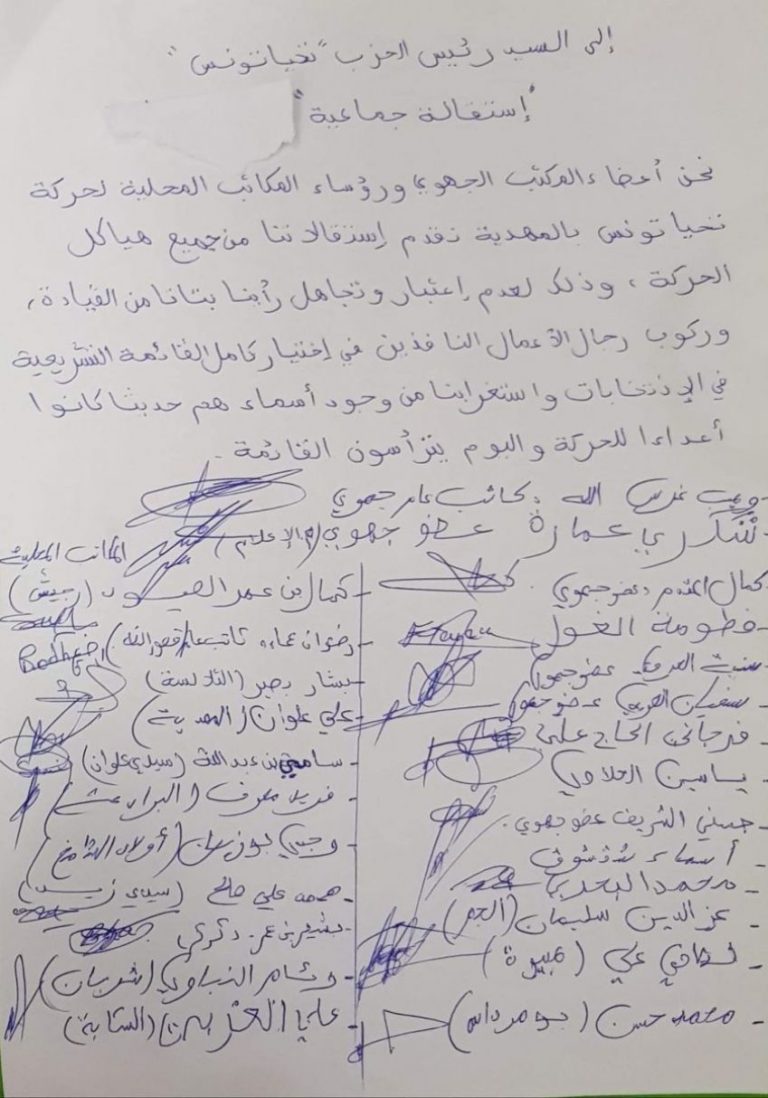 إلى السيد رئيس الحزب "تحيا تونس"
"إستقالة جماعية"
نحن أعضاء المكتب الجهوي ورؤساء المكاتب المحلية لحركة
تحيا تونس بالمهدية نقدم إستقالاتنا من جميع هياكل
الحركة، وذلك لعدم إعتبار وتجاهل رأينا بتاتا من القيادة،
وركوب رجال الأعمال النافذين في إختيار كامل القائمة التشريعية
في الإنتخابات واستغرابنا من وجود أسماء هم حديثا كانوا
أعداءا للحركة واليوم يترأسون القائمة.
غرس الله. كاتب عام جهوي
- شكري عمارة عضو جهوي (الإعلام)
كمال عضو جهوي
- فطومة الغول
عضو جهوي
- سفيان عضو جهوي
- فرجاني الحاج علي
- ياسين العلاوي
- حسني الشريف عضو جهوي.
- أسماء شوشان
- محمد البحري
- عز الدين سليمان (الجم)
- علي (هبيرة)
- محمد حسن (بومرداس)
المكاتب المحلية
- كمال بن عمر (رجيش)
- رضوان عمارة كاتب عام (قصور الساف)
- بشار (التلالسة)
- علي علوان (المهدية)
- سامي بن عبد الله (سيدي علوان)
- فريد (البرادعة)
- وجدي (أولاد الشامخ)
- علي صالح (سيدي زيد)
- بشير بن عمر. زكري
- وسام الذيباوي (شربان)
- علي (السابة)